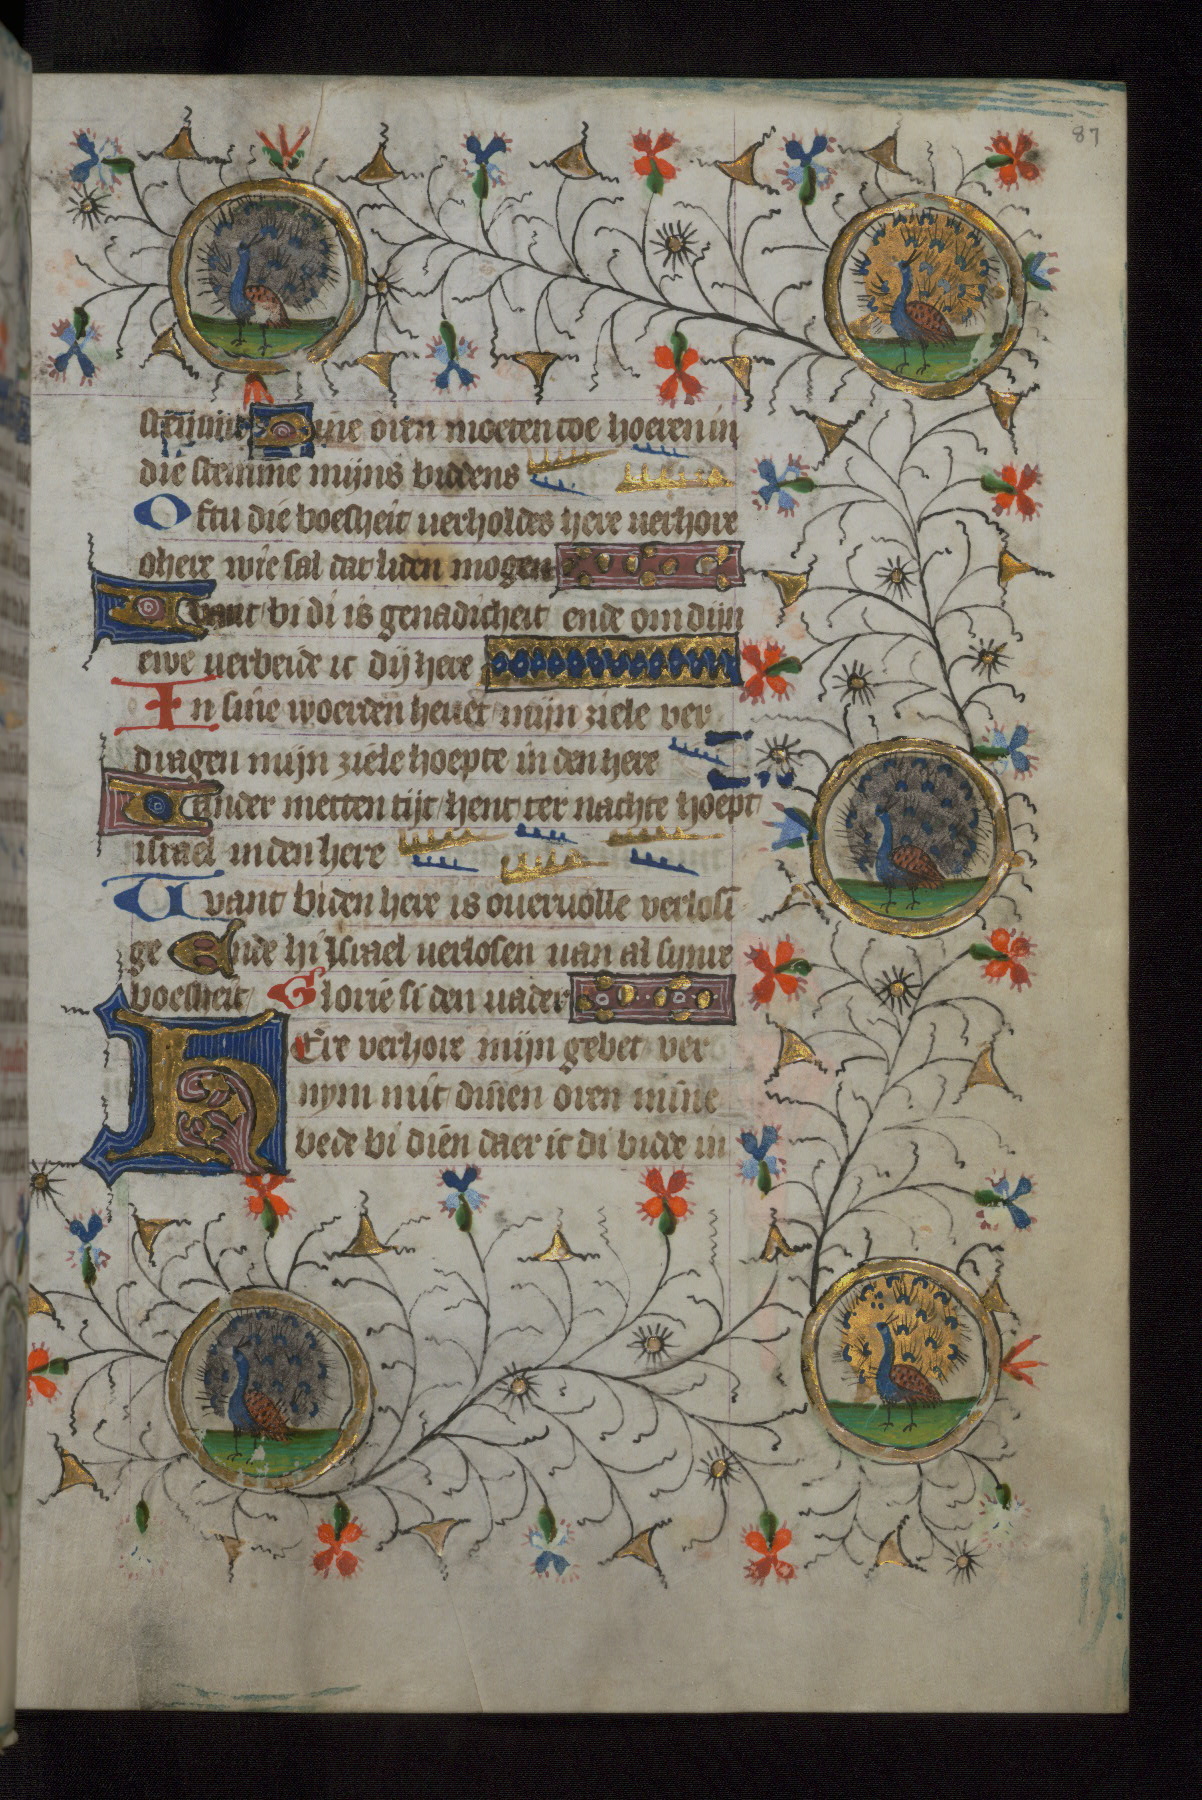 87
stemme Dine oren moeten toe hoeren in
die stemme mijns biddens
Oftu die boesheit verholdes here verhore
o here wie sal dat liden mogen
Want bi di is genadicheit ende om dijn
ewe verbeide ic dij here
In sine woerden hevet mijn ziele ver
dragen mijn ziele hoepte in den here
Vander metten tijt hent ter nachte hoept
israel in den here
Want bi den here is overvolle verlosi
ge Ende hi Israel verlosen van al synre
boesheit Glorie si den vader
HEre verhore mijn gebet ver
nym mit dinen oren mine
bede bi dien daer ic di bidde in